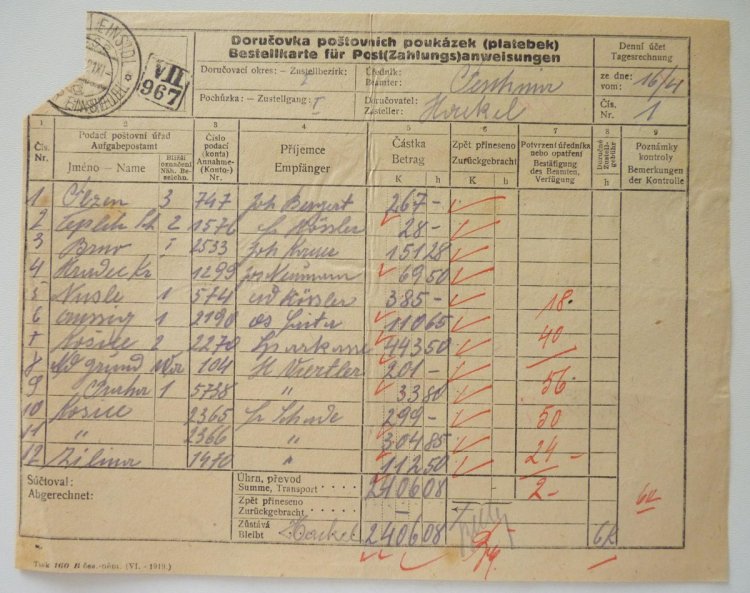 EINSIDL
VII
967
Doručovka poštovních poukázek (platebek)
Bestellkarte für Post(Zahlungs)anweisungen
Doručovací okres: - Zustellbezirk: I
Pochůzka: - Zustellgang: I
Úředník:
Beamter:
Doručovatel:
Zusteller: Hackel
Denní účet
Tagesrechnung
ze dne:
vom: 16/4
Čís.
Nr. 1
1 2 3 4 5 6 7 8 9
Čís. Nr.
Podací poštovní úřad
Aufgabepostamt
Jméno - Name
Bližší označení
Näh. Bezeichn.
Číslo podací (konta)
Annahme-(Konto-) Nr.
Příjemce
Empfänger
Částka
Betrag
K h
Zpět přineseno
Zurückgebracht
K h
Potvrzení úředníka nebo opatření
Bestätigung des Beamten, Verfügung
Doručné
Zustellgebühr
h
Poznámky kontroly
Bemerkungen der Kontrolle
1 Plzen 3 747 Joh 267 -
2 Teplitz Sch 2 1576 Kössler 28 -
3 Brno I 2533 Joh 151 28
4 Hradec Kr 1299 Jos Neumann 69 50
5 Nusle 1 574 Kössler 385 - 18
6 Aussig 1 2190 110 65
7 Kosice 2 2270 Sparkasse 443 50 40
8 grund 104 Viertler 201 - 56
9 Praha 1 5738 " 33 80
10 Kosice 2365 299 - 50
11 " 2366 " 304 85
12 Zilina 1470 " 112 50 24 -
Súčtoval:
Abgerechnet:
Úhrn, převod
Summe, Transport 2406 08 2 -
Zpět přineseno
Zurückgebracht -
Zůstává
Bleibt Hackel 2406 08
Tisk 160 B čes.-něm. (VI. - 1919.)